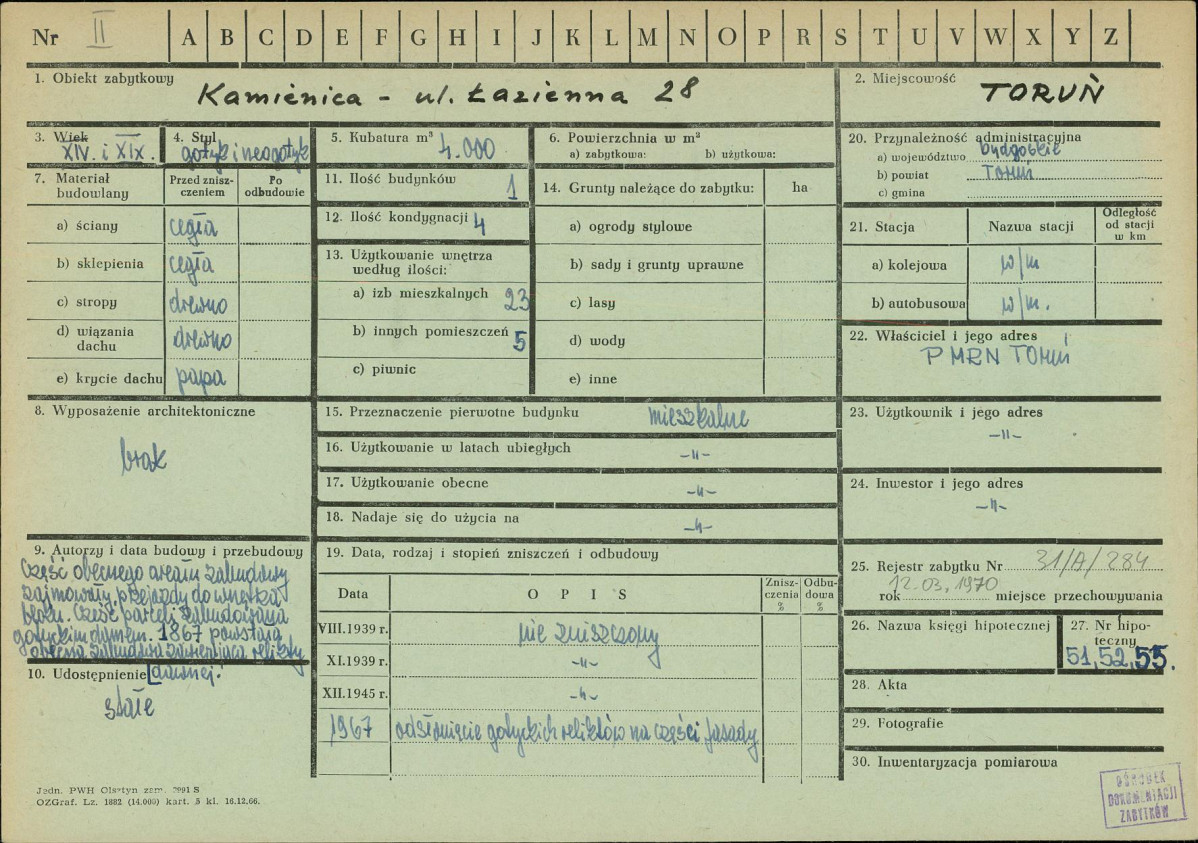 Nr II A B C D E F G H I J K L M N O P R S T U V W X Y Z
1. Obiekt zabytkowy
Kamienica - ul. Łazienna 28
2. Miejscowość
TORUŃ
3. Wiek
XIV. i XIX.
4. Styl
gotyk i neogotyk
5. Kubatura m³ 4.000
6. Powierzchnia w m²
a) zabytkowa: b) użytkowa:
7. Materiał budowlany
Przed zniszczeniem
Po odbudowie
a) ściany cegła
b) sklepienia cegła
c) stropy drewno
d) wiązania dachu drewno
e) krycie dachu papa
11. Ilość budynków 1
12. Ilość kondygnacji 4
13. Użytkowanie wnętrza
według ilości:
a) izb mieszkalnych 23
b) innych pomieszczeń 5
c) piwnic
14. Grunty należące do zabytku: ha
a) ogrody stylowe
b) sady i grunty uprawne
c) lasy
d) wody
e) inne
20. Przynależność administracyjna
a) województwo bydgoskie
b) powiat Toruń
c) gmina
21. Stacja Nazwa stacji
Odległość
od stacji
w km
a) kolejowa w/m
b) autobusowa w/m.
22. Właściciel i jego adres
PMRN Toruń
8. Wyposażenie architektoniczne
brak
15. Przeznaczenie pierwotne budynku mieszkalne
16. Użytkowanie w latach ubiegłych -"-
17. Użytkowanie obecne -"-
18. Nadaje się do użycia na -"-
23. Użytkownik i jego adres
-"-
24. Inwestor i jego adres
-"-
9. Autorzy i data budowy i przebudowy
Część obecnego areału zabudowy
zajmowały przejazdy do wnętrza
bloku. Część parceli zabudowana
gotyckim domem. 1867 powstała
obecna zabudowa zawierająca relikty
[dawnej.
10. Udostępnienie
stałe
19. Data, rodzaj i stopień zniszczeń i odbudowy
Data
O P I S
Zniszczenia %
Odbudowa %
VIII.1939 r. nie zniszczony
XI.1939 r. -"-
XII.1945 r. -"-
1967 odsłonięcie gotyckich reliktów na części fasady
25. Rejestr zabytku Nr 31/A/284
rok 12.03.1970 miejsce przechowywania
26. Nazwa księgi hipotecznej
27. Nr hipoteczny
51, 52, 53.
28. Akta
29. Fotografie
30. Inwentaryzacja pomiarowa
Jedn. PWH Olsztyn zam. 2991 S
OZGraf. Lz. 1882 (14.000) kart. 5 kl. 16.12.66.
OŚRODEK
DOKUMENTACJI
ZABYTKÓW